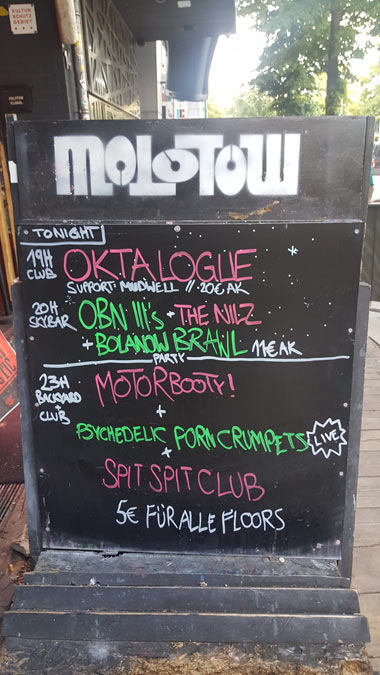 KULTUR
SCHUTZ
GEBIET
MOLOTOW
TONIGHT
19H
CLUB
OKTALOGUE
SUPPORT: MUDWELL // 20€ AK
20H
SKYBAR
OBN III's + THE NILZ
+ BOLANOW BRAWL 11€ AK
PARTY
23H
BACKYARD
CLUB
MOTORBOOTY!
+
PSYCHEDELIC PORN CRUMPETS LIVE
+
SPIT SPIT CLUB
5€ FÜR ALLE FLOORS